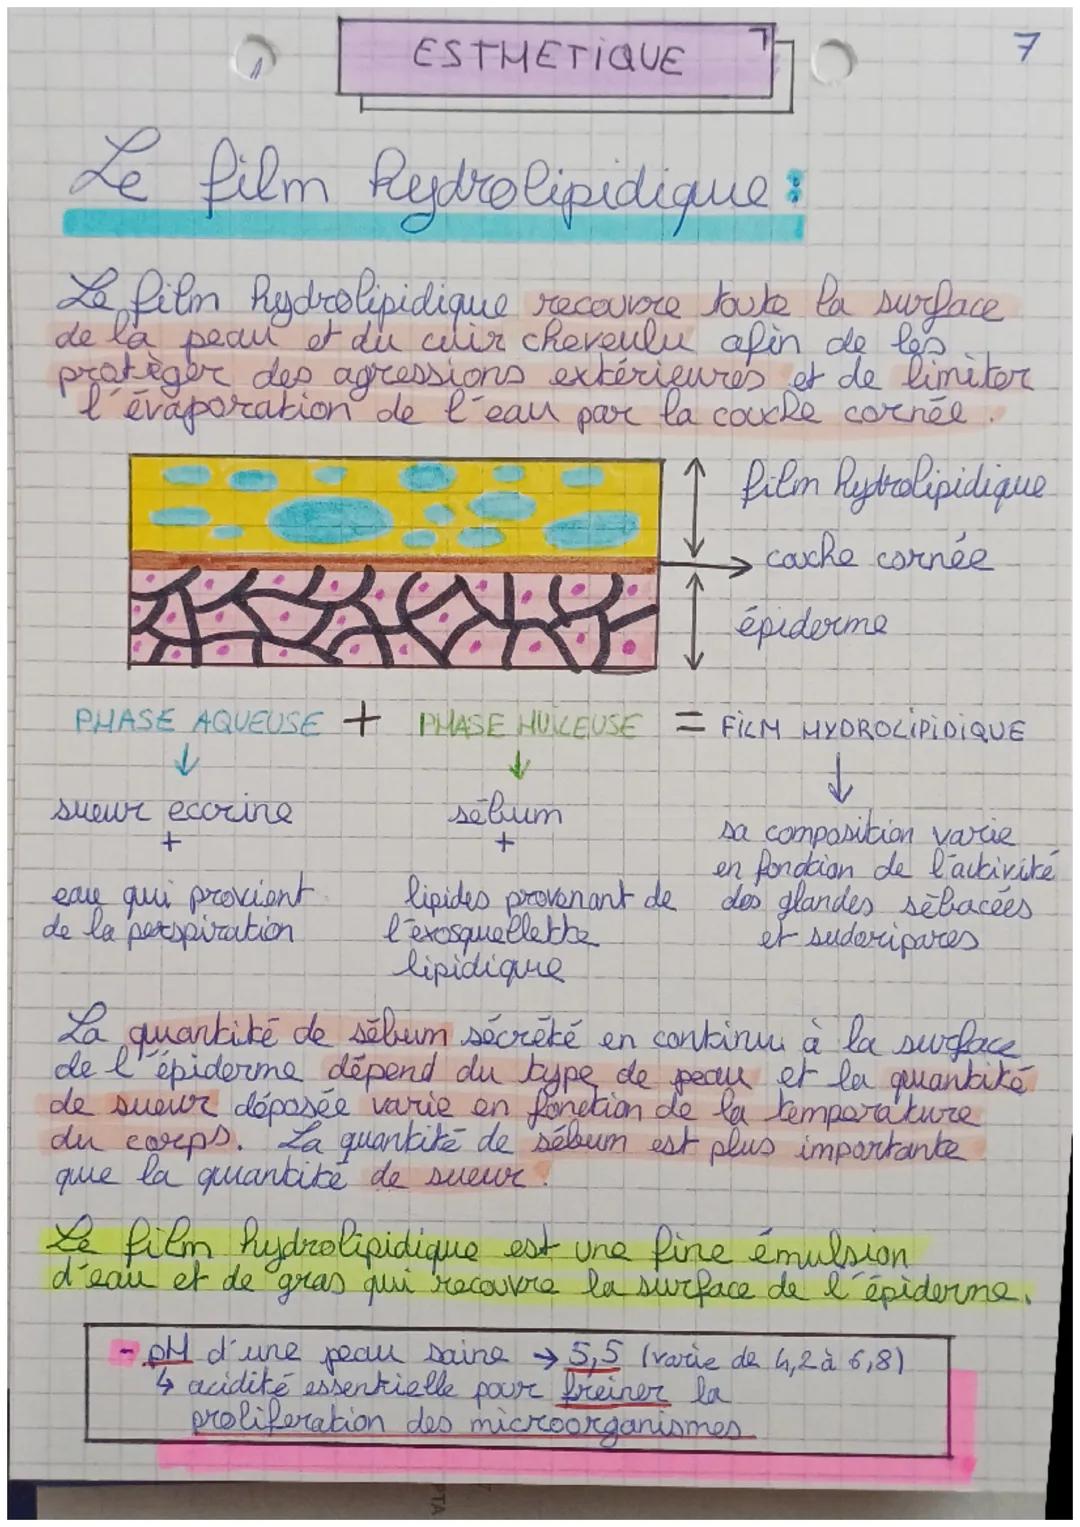 ESTHETIQUE
7
Le film hydrolipidique :
Le film hydrolipidique recouvre toute la surface
de la peau et du cuir chevelu afin de les
protèger des agressions extérieures et de limiter
l'évaporation de l'eau par la couche cornée.
film hydrolipidique
couche cornée
épiderme
PHASE AQUEUSE + PHASE HUILEUSE = FILM HYDROLIPIDIQUE
sueur eccrine
+
eau qui provient
de la perspiration
sébum
+
lipides provenant de
l'exosquellette
lipidique
sa composition varie
en fonction de l'activité
des glandes sébacées
et sudoripares
La quantité de sébum sécrété en continu à la surface
de l'épiderme dépend du type de peau et la quantité
de sueur déposée varie en fonction de la température
du corps. La quantité de sébum est plus importante
que la quantité de sueur.
Le film hydrolipidique est une fine émulsion
d'eau et de gras qui recouvre la surface de l'épiderme.
- pH d'une peau saine → 5,5 (varie de 4,2 à 6,8)
↳ acidité essentielle pour freiner la
prolifération des microorganismes
PTA